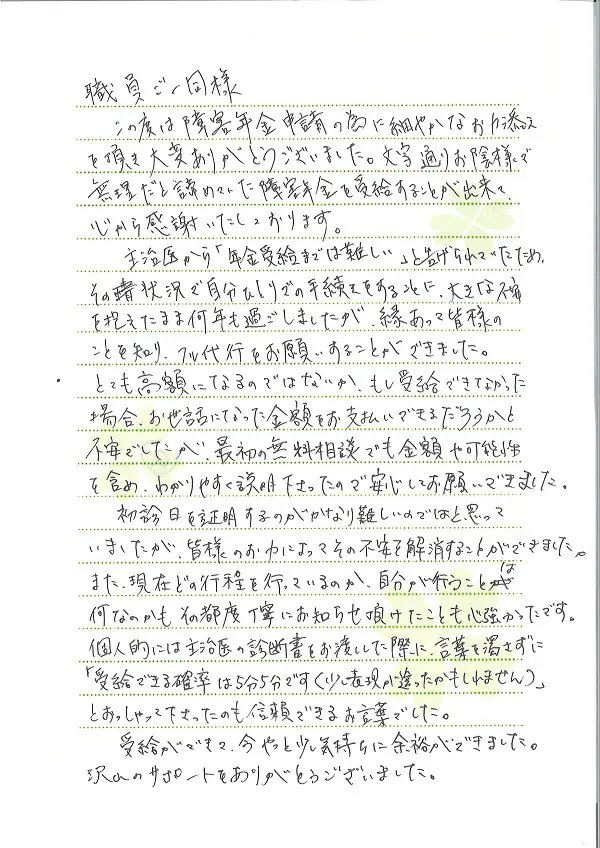 職員ご一同様
この度は障害年金申請の為に細やかなお力添え
を頂き大変ありがとうございました。文字通りお陰様で
無理だと諦めていた障害年金を受給することが出来て、
心から感謝いたしております。
主治医から「年金受給までは難しい」と告げられていたため、
その状況で自分ひとりでの手続きをすることに、大きな不安
を抱えたまま何年も過ごしましたが、縁あって皆様の
ことを知り、フル代行をお願いすることができました。
とても高額になるのではないか、もし受給できなかった
場合、お世話になった金額をお支払いできるだろうかと
不安でしたが、最初の無料相談でも金額や可能性
を含め、わかりやすく説明下さったので安心してお願いできました。
初診日を証明するのがかなり難しいのではと思って
いましたが、皆様のお力によってその不安を解消することができました。
また、現在どの行程を行っているのか、自分が行うことは
何なのかもその都度丁寧にお知らせ頂けたことも心強かったです。
個人的には主治医の診断書をお渡しした際に、言葉を濁さずに
「受給できる確率は5分5分です(少し表現が違ったかもしれません)」
とおっしゃって下さったのも信頼できるお言葉でした。
受給ができて、今やっと少し気持ちに余裕ができました。
沢山のサポートをありがとうございました。